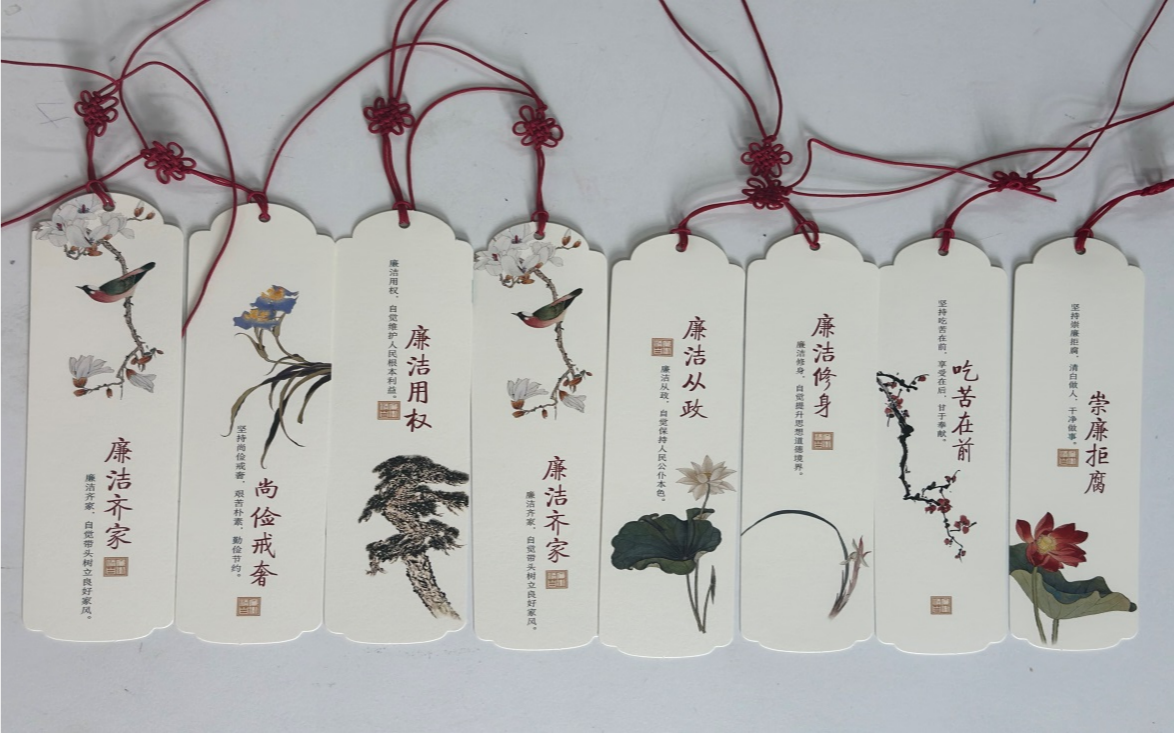 廉洁齐家
廉洁齐家，自觉带头树立良好家风。
坚持尚俭戒奢，艰苦朴素，勤俭节约。
尚俭戒奢
廉洁用权，自觉维护人民根本利益。
廉洁用权
廉洁齐家
廉洁齐家，自觉带头树立良好家风。
廉洁从政
廉洁从政，自觉保持人民公仆本色。
廉洁修身
廉洁修身，自觉提升思想道德境界。
坚持吃苦在前，享受在后，甘于奉献。
吃苦在前
坚持崇廉拒腐，清白做人，干净做事。
崇廉拒腐